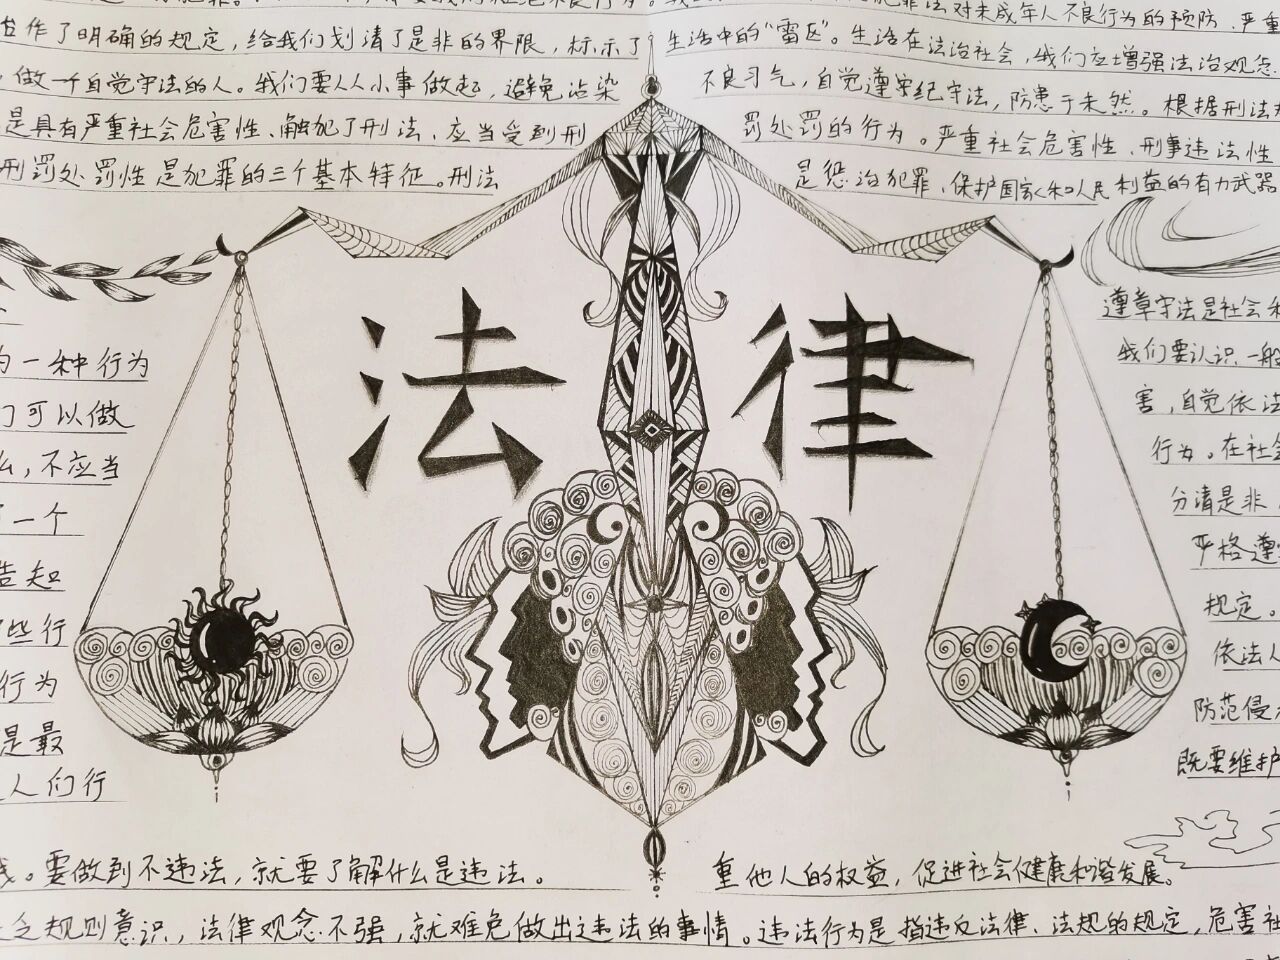 法对未成年人不良行为的预防,严重
作了明确的规定,给我们划清了是非的界限,标示了生活中的“雷区”。生活在法治社会,我们应增强法治观念
做一个自觉守法的人。我们要从小事做起,避免沾染不良习气,自觉遵守纪守法,防患于未然。根据刑法
是具有严重社会危害性、触犯了刑法、应当受到刑罚处罚的行为。严重社会危害性、刑事违法性
刑罚处罚性是犯罪的三个基本特征。刑法是惩治犯罪、保护国家和人民利益的有力武器
法律
一种行为
们可以做
么,不应当
一个
告知
些行
行为
是最
人们行
遵章守法是社会和
我们要认识一般
害,自觉依法
行为。在社会
分清是非
严格遵守
规定。
依法人
防范侵
既要维护
。要做到不违法,就要了解什么是违法。
重他人的权益,促进社会健康和谐发展。
乏规则意识,法律观念不强,就难免做出违法的事情。违法行为是指违反法律、法规的规定,危害社